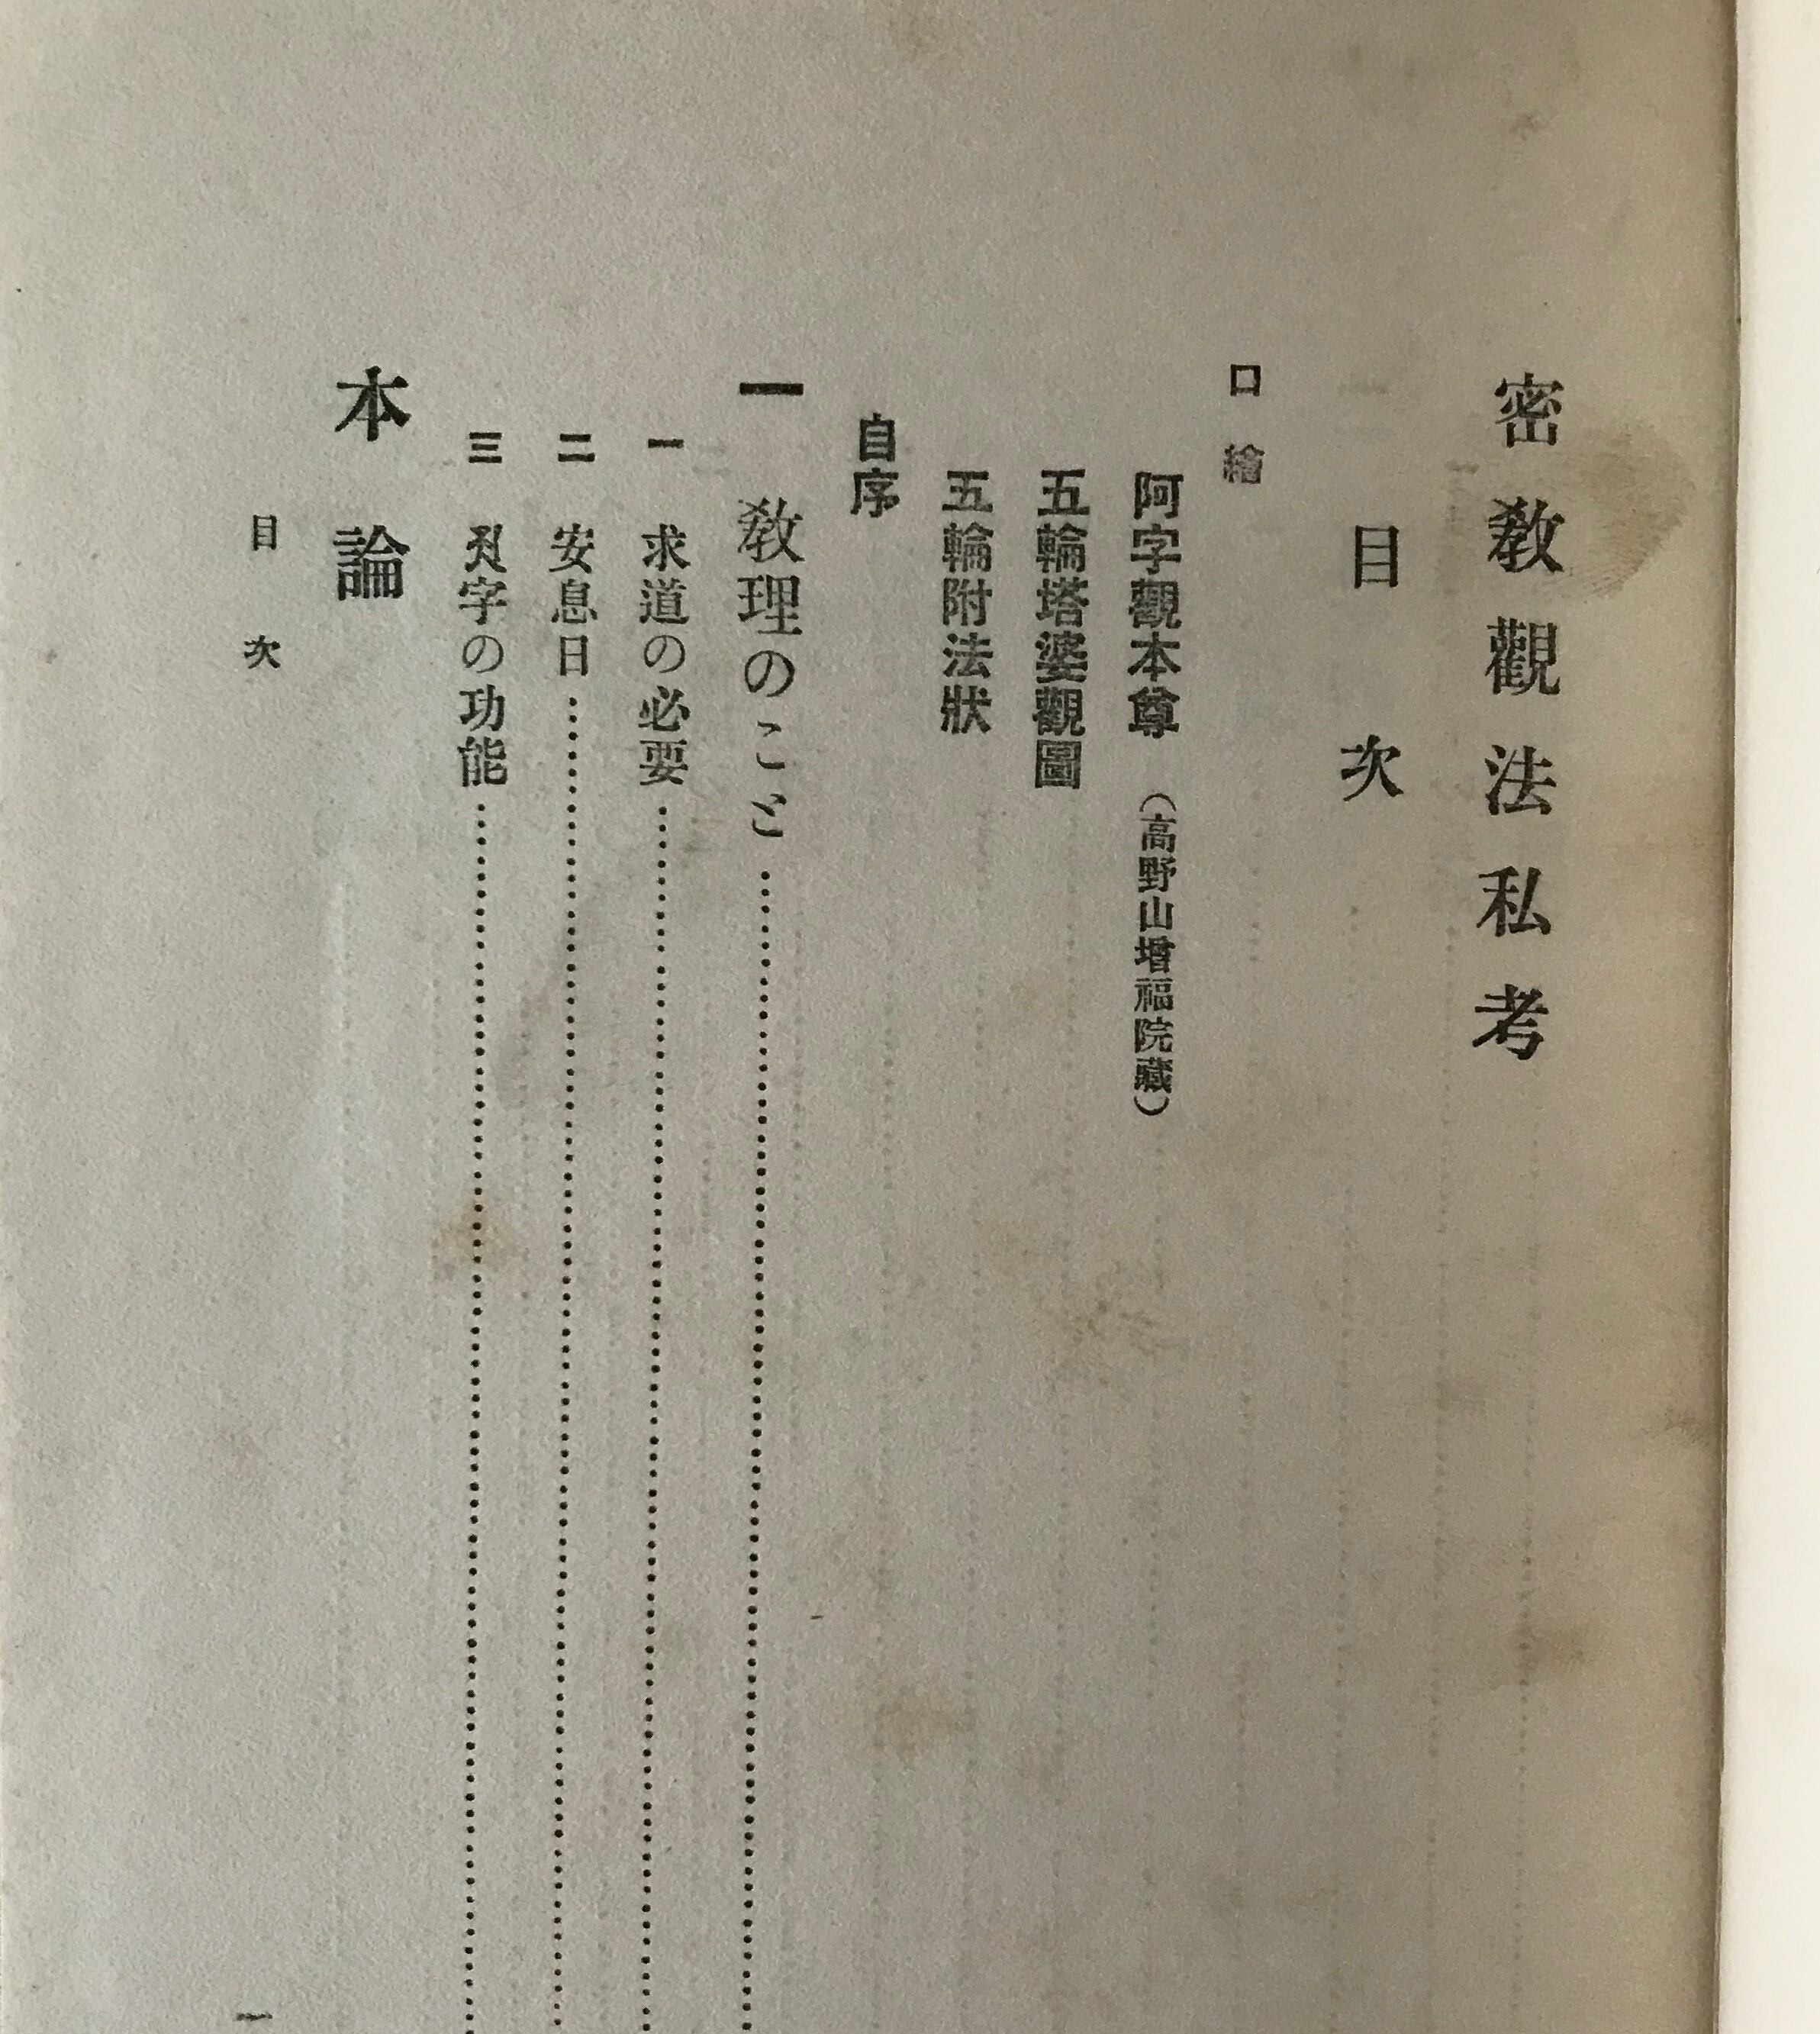 密教觀法私考
目次
口繪
阿字觀本尊（高野山增福院藏）
五輪塔婆觀圖
五輪附法狀
自序
一 教理のこと……
一 求道の必要……
二 安息日……
三 𑖀字の功能……
本論
目次
一